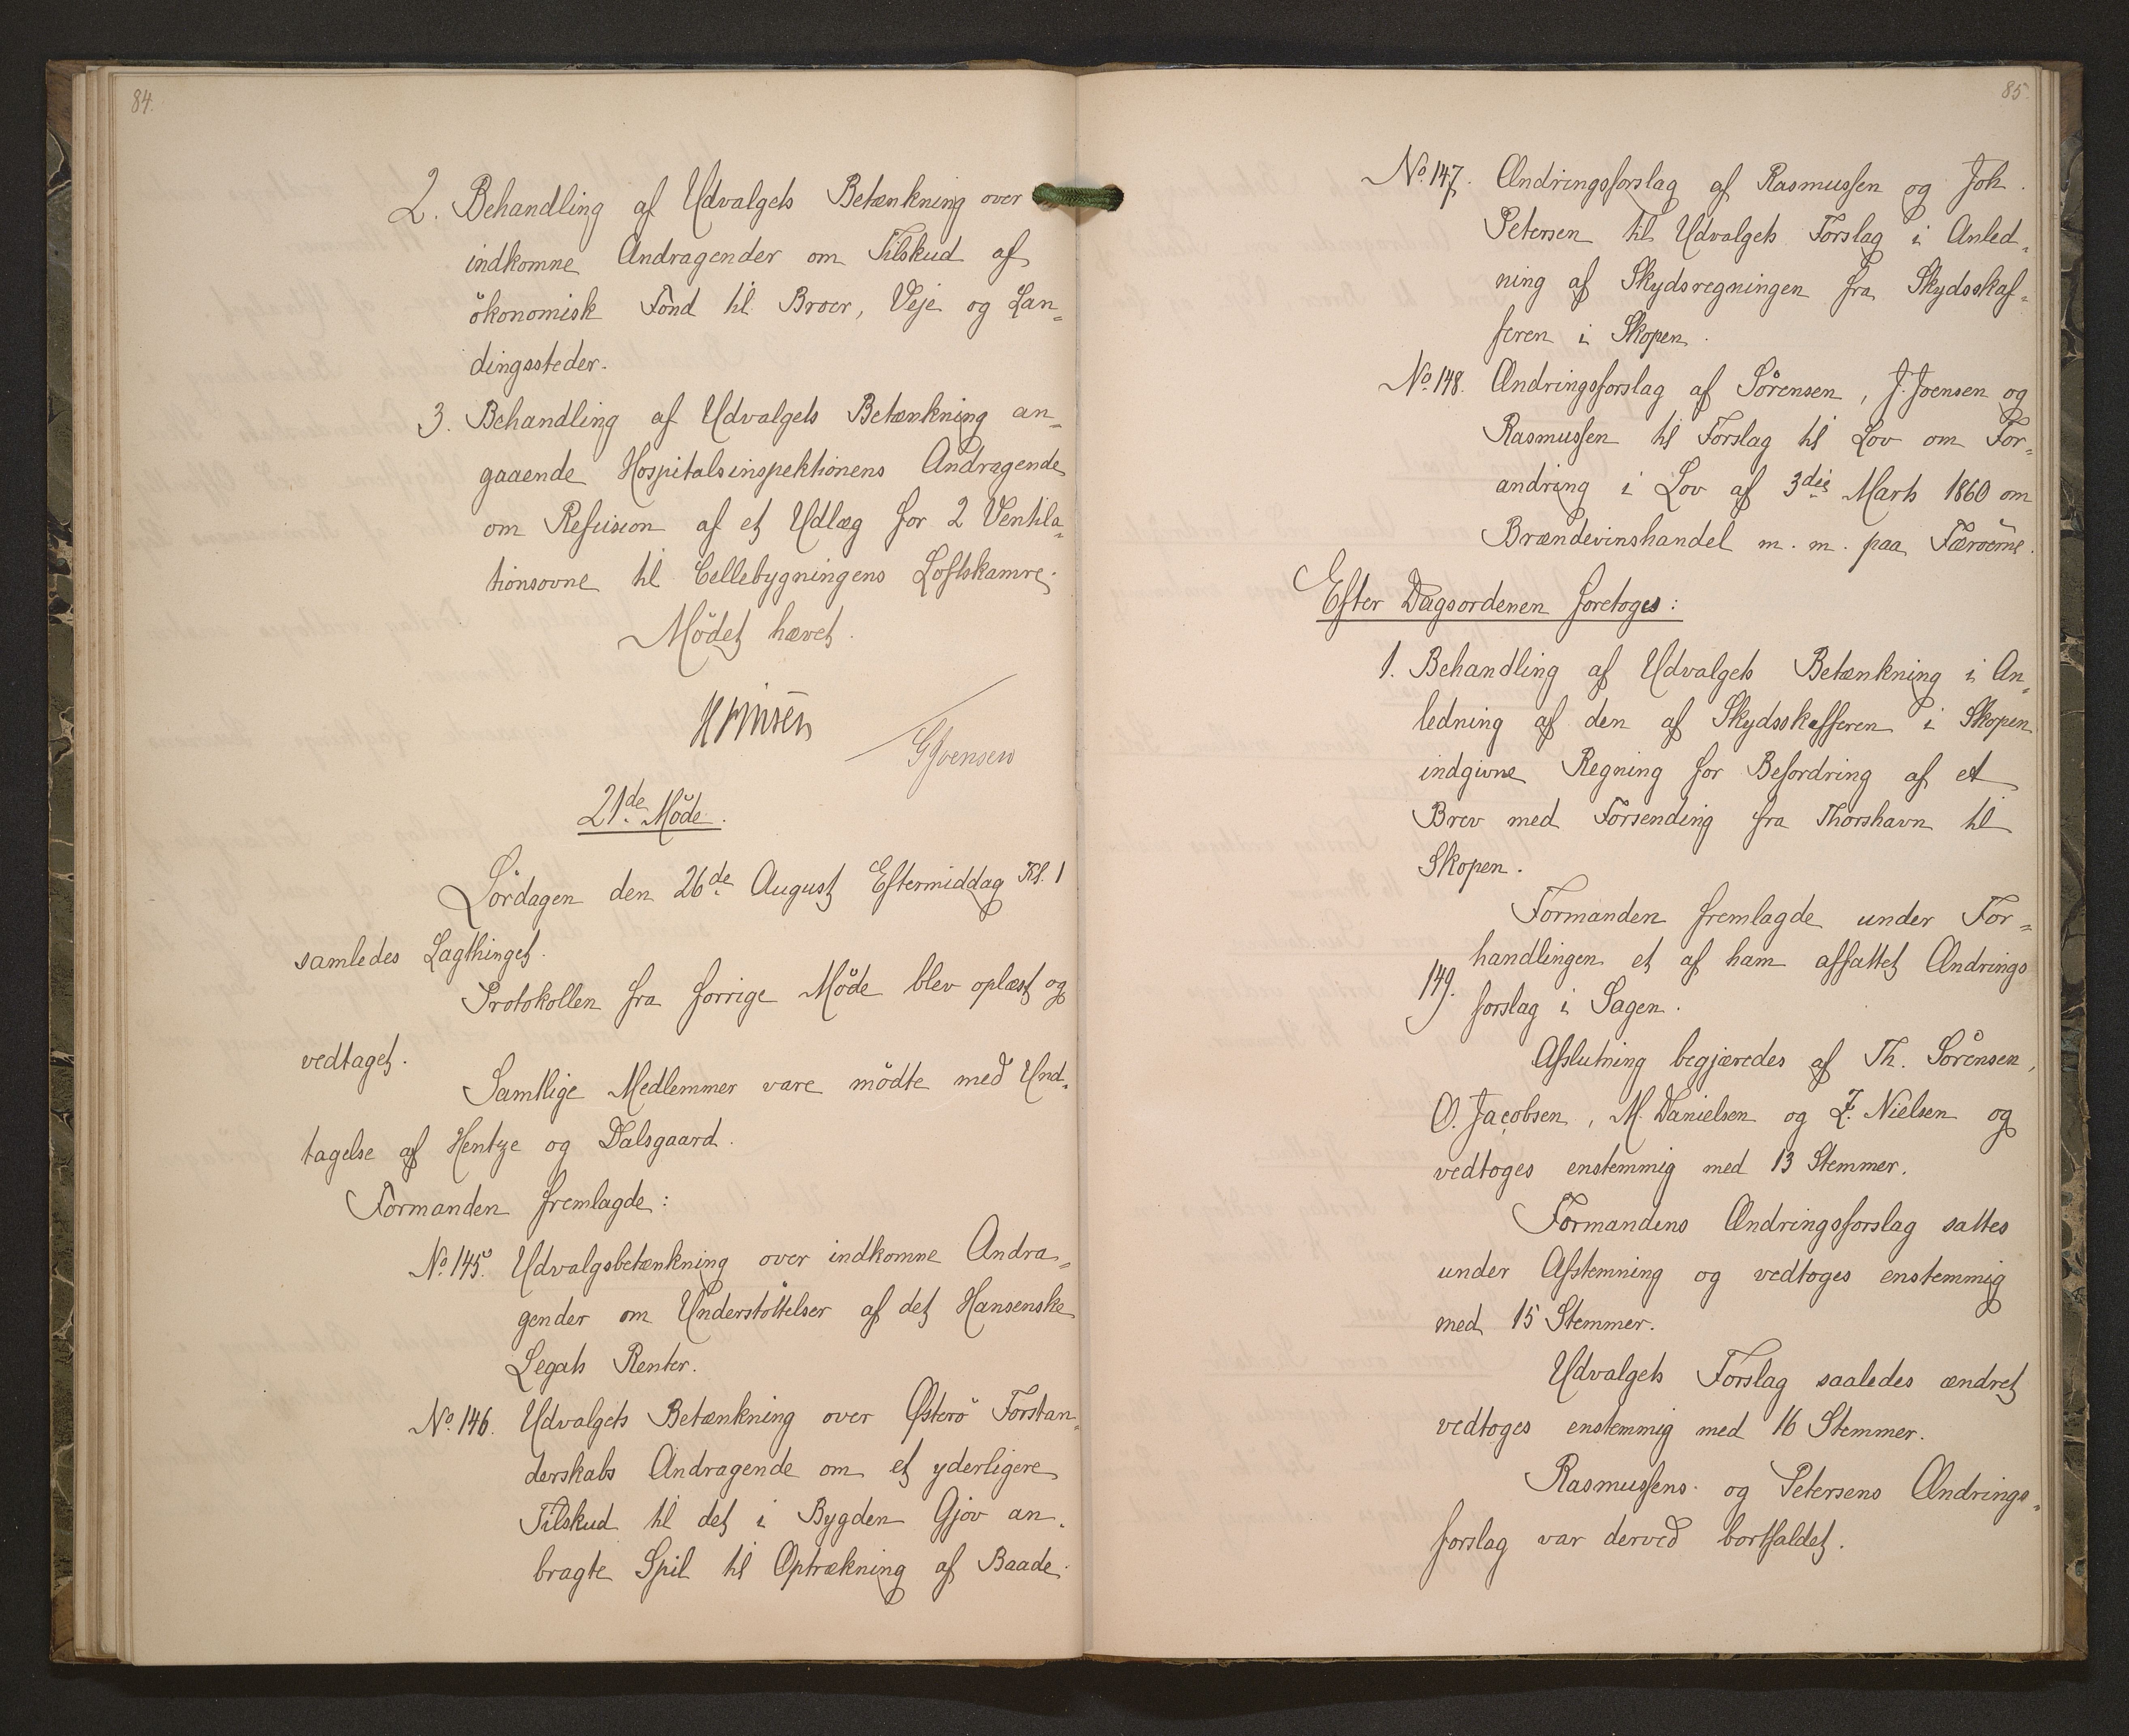 84.
2. Behandling af Udvalgets Betænkning over
indkomne Andragender om Tilskud af
ökonomisk Fond til Broer, Veje og Lan„
dingssteder.
3. Behandling af Udvalgets Betænkning an„
gaaende Hospitalsinspektionens Andragende
om Refusion af et Udlæg for 2 Ventila„
tionsovne til Cellebygningens Loftskamre.
Mödet hævet.
GJoensen
21de Möde.
Lördagen den 26de August Eftermiddag Kl. 1
samledes Lagthinget.
Protokollen fra forrige Möde blev oplæst og
vedtaget.
Samtlige Medlemmer vare mödte med Und„
tagelse af Hentze og Dalsgaard.
Formanden fremlagde:
No. 145. Udvalgsbetænkning over indkomne Andra„
gender om Understöttelser af det Hansenske
Legats Renter.
No. 146. Udvalgets Betænkning over Østerö Forstan„
derskabs Andragende om et yderligere
Tilskud til det i Bygden Gjov an„
bragte Spil til Optrækning af Baade.
85.
No. 147. Ændringsforslag af Rasmussen og Joh.
Petersen til Udvalgets Forslag i Anled„
ning af Skydsregningen fra Skydsskaf„
feren i Skopen.
No. 148. Ændringsforslag af Sörensen, J. Joensen og
Rasmussen til Forslag til Lov om For„
andring i Lov af 3die Marts 1860 om
Brændevinshandel m. m. paa Færöerne.
Efter Dagsordenen foretoges:
1. Behandling af Udvalgets Betænkning i An„
ledning af den af Skydsskafferen i Skopen
indgivne Regning for Befordring af et
Brev med Forsending fra Thorshavn til
Skopen.
Formanden fremlagde under For„
handlingen et af ham affattet Ændrings
149. forslag i Sagen.
Afslutning begjæredes af Th. Sörensen,
O. Jacobsen, M. Danielsen og Z. Nielsen og
vedtoges enstemmig med 13 Stemmer.
Formandens Ændringsforslag sattes
under Afstemning og vedtoges enstemmig
med 15 Stemmer.
Udvalgets Forslag saaledes ændret
vedtoges enstemmig med 16 Stemmer.
Rasmussens og Petersens Ændrings„
forslag var derved bortfaldet.